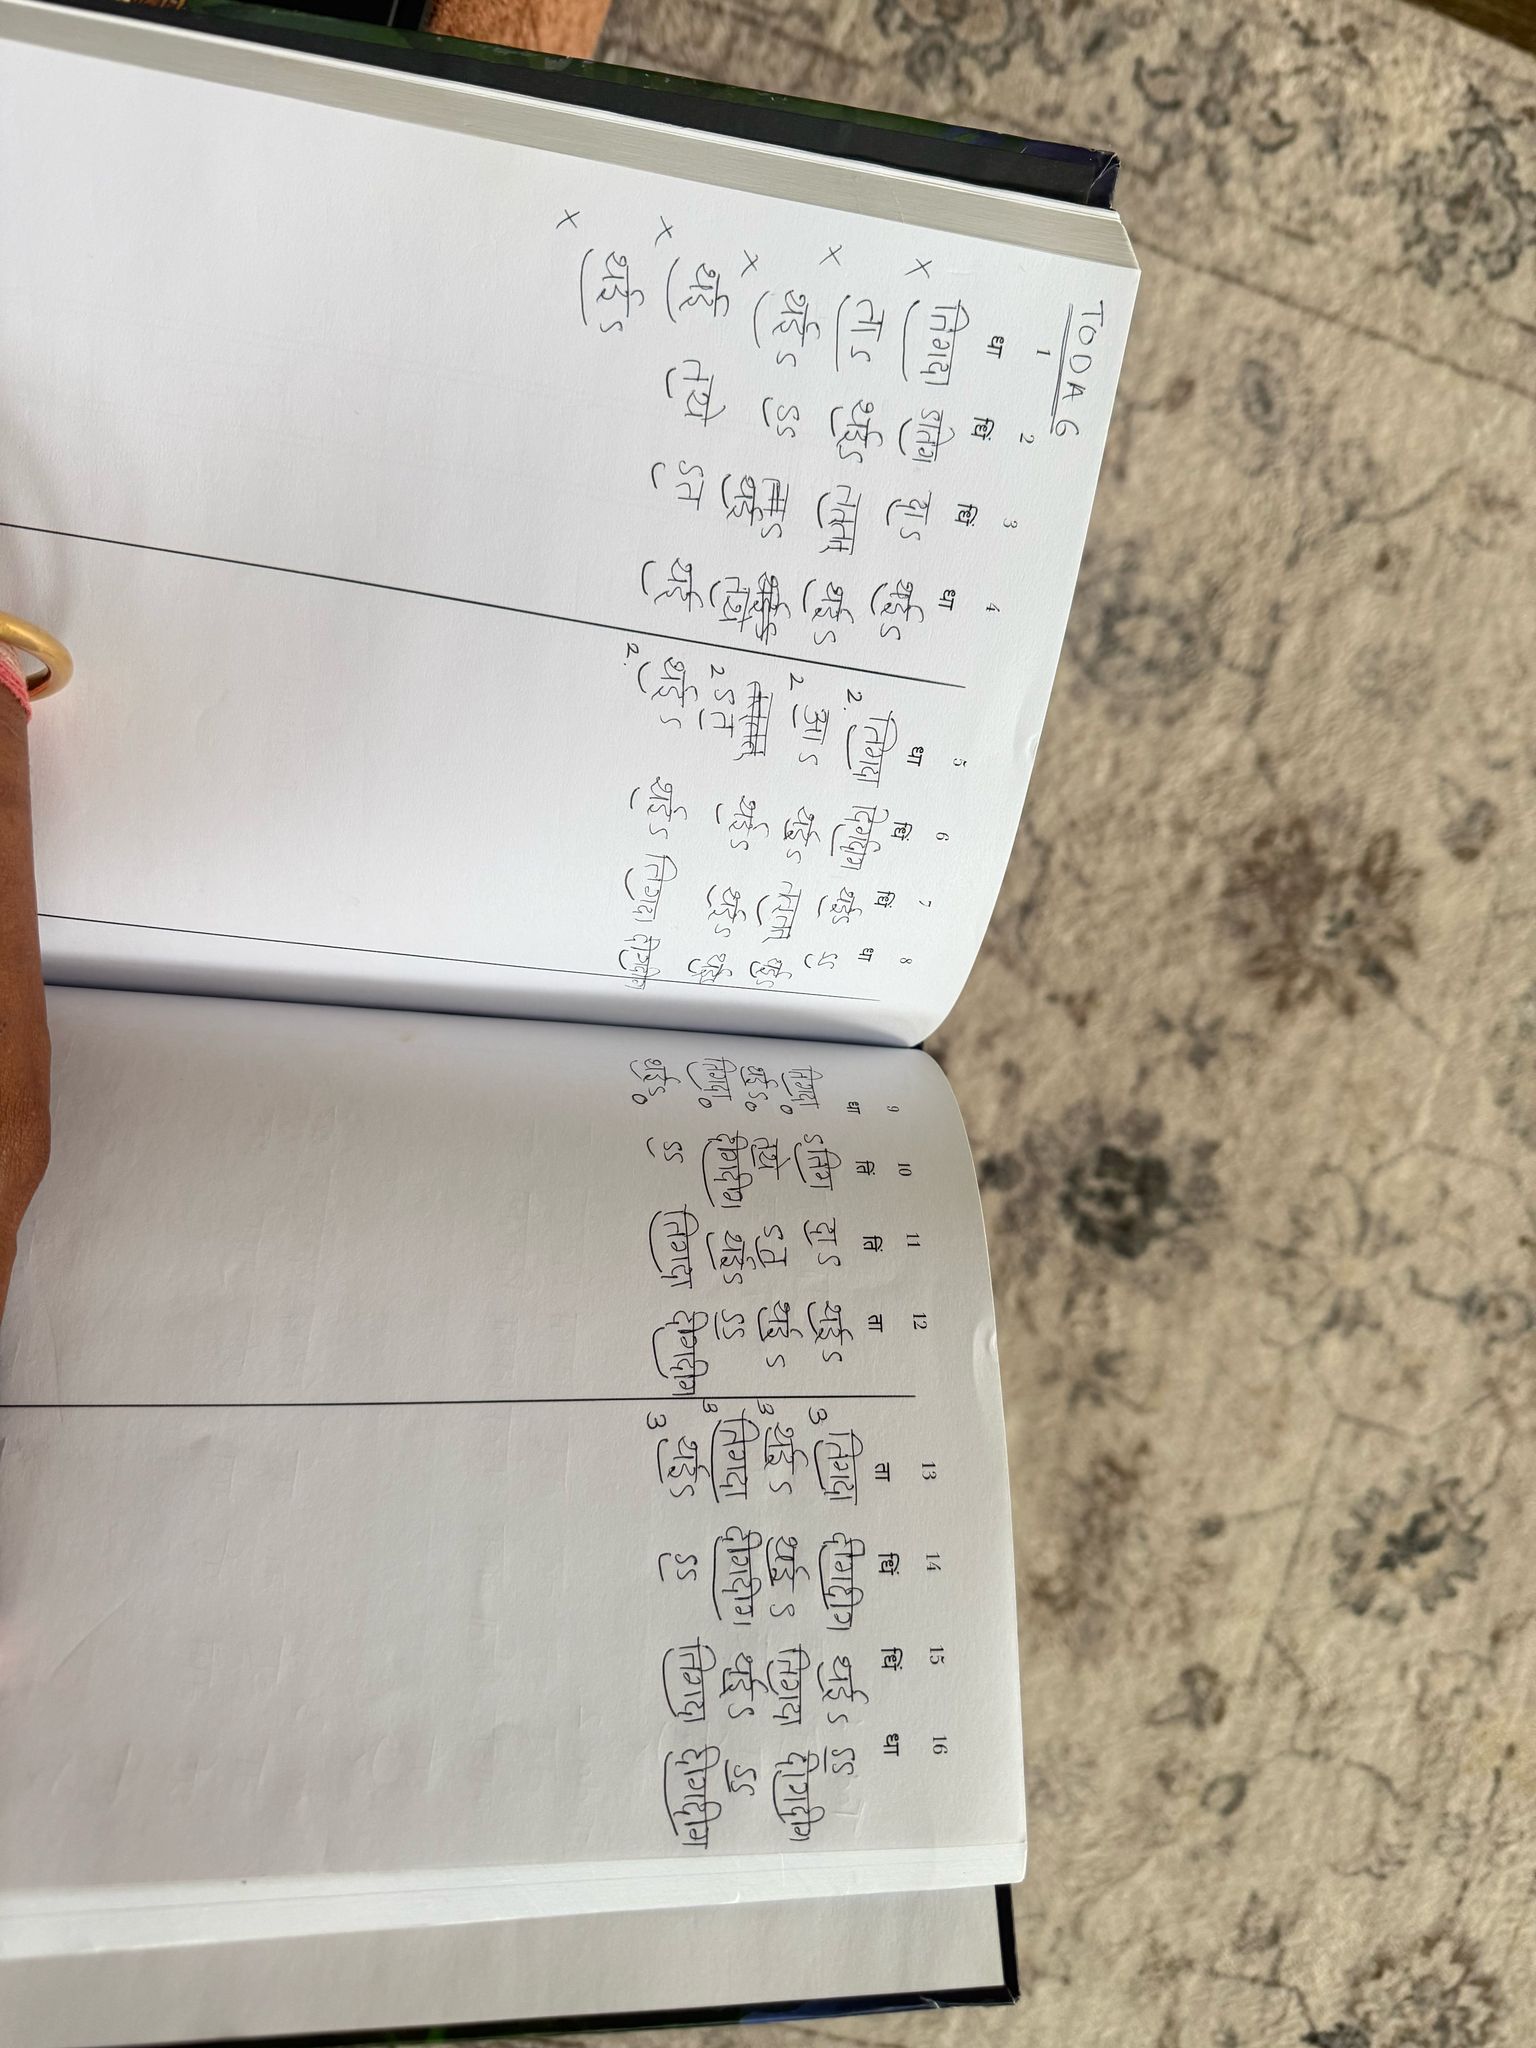 TODA 6
1 2 3 4 5 6 7 8 9 10 11 12 13 14 15 16
धा धिं धिं धा धा धिं धिं धा धा तिं तिं ता ता धिं धिं धा
x तिगदा ऽतिग दाऽ थईऽ 2. तिगदा दिगदिग थईऽ ऽऽ 0 तिगदा ऽतिग दाऽ थईऽ 3 तिगदा दीगदीग थईऽ ऽऽ
x ताऽ थईऽ ततता थईऽ 2 आऽ थईऽ ततता थईऽ 0 थईऽ तथे ऽत थईऽ 3 थईऽ थईऽ तिगदा दीगदीग
x थईऽ ऽऽ थईऽ तथे 2 ऽत थईऽ थईऽ थईऽ 0 तिगदा दीगदीग थईऽ ऽऽ 3 तिगदा दीगदीग थईऽ ऽऽ
x थई तथे ऽत थई 2. थईऽ थईऽ तिगदा दीगदीग 0 थईऽ ऽऽ तिगदा दीगदीग 3 थईऽ ऽऽ तिगदा दीगदीग
x थईऽ